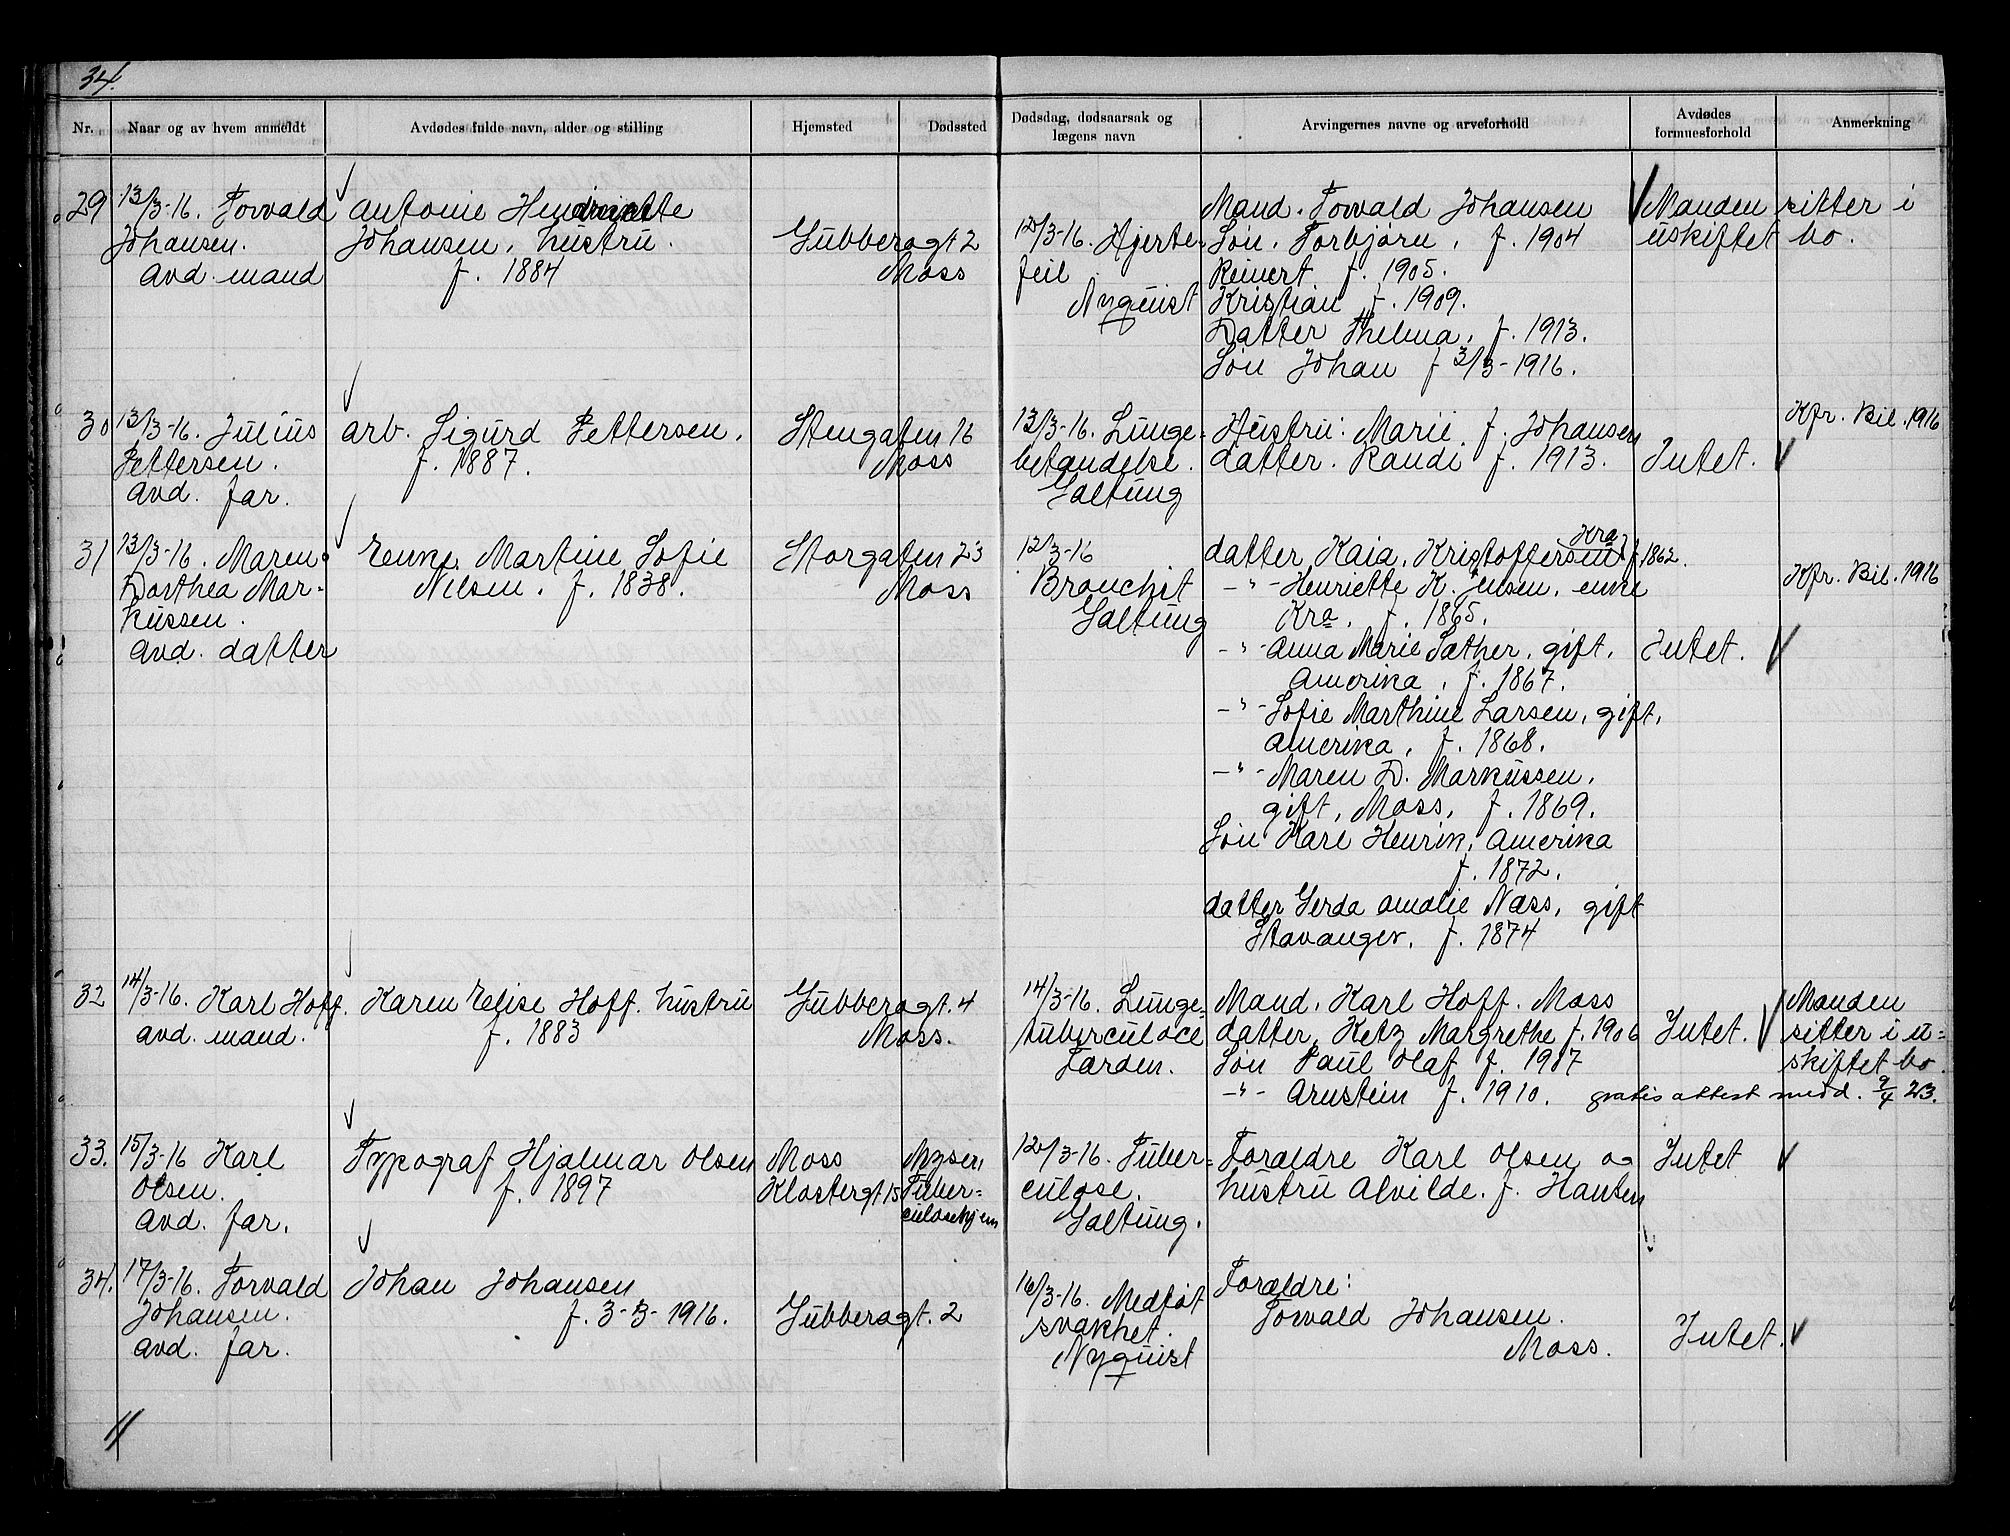 34.
Nr. Naar og av hvem anmeldt Avdødes fulde navn, alder og stilling Hjemsted Dødssted Dødsdag, dødsaarsak og lægens navn Arvingernes navne og arveforhold Avdødes formuesforhold Anmerkning
29 13/3-16. Torvald
Johansen.
avd. mand
Antonie Hendriette
Johansen, hustru.
f. 1884
Gubberogt 2
Moss
12/3-16. Hjerte-
feil
Nyquist
Mand. Torvald Johansen
Søn. Torbjørn, f. 1904
Reinert f. 1905.
Kristian f. 1909.
Datter Thelma, f. 1913.
Søn Johan f 3/3-1916.
Manden sitter i
uskiftet bo.
30 13/3-16. Julius
Pettersen.
avd. far.
arb. Sigurd Pettersen.
f. 1887.
Stengaten 16
Moss
13/3-16. Lunge-
betændelse.
Galtung
Hustru: Marie f. Johansen
datter. Randi f. 1913.
Intet.
Kfr. Bil. 1916
31 13/3-16. Maren
Dorthea Mar-
kussen.
avd. datter
Enke. Martine Sofie
Nilsen. f. 1838.
Storgaten 23
Moss
12/3-16
Bronchit
Galtung
Kra
datter Kaia, Kristoffersen f. 1862.
-"- Henriette K. Jensen, enke
Kra. f. 1865.
-"- Anna Marie Sæther, gift,
Amerika, f. 1867.
-"- Sofie Marthine Larsen, gift,
Amerika, f. 1868.
-"- Maren D. Markussen,
gift, Moss, f. 1869.
Søn Karl Henrik, Amerika
f. 1872.
datter Gerda Amalie Næss, gift
Stavanger, f. 1874
Intet.
Kfr. Bil. 1916
32 14/3-16. Karl Hoff.
avd. mand.
Karen Elise Hoff. hustru
f. 1883
Gubberogt. 4
Moss.
14/3-16. Lunge-
tuberculoce
Farden.
Mand, Karl Hoff. Moss
datter, Ketz Margrethe f. 1906
Søn Paul Olaf f. 1907
-"- Arnstein f. 1910.
Intet.
Manden
sitter i u-
skiftet bo.
gratis attest medd. 9/4 23.
33. 15/3-16 Karl
Olsen.
avd. far.
Typograf Hjalmar Olsen
f. 1897
Moss
Klostergt 15
Mysen
Tuber-
culosehjem
12/3-16. Tuber-
culose.
Galtung.
Forældre Karl Olsen og
hustru Alvilde. f. Hansen
Intet
34. 17/3-16. Torvald
Johansen.
avd. far.
Johan Johansen
f. 3-3-1916.
Gubberogt. 2
16/3-16. Medføt
svakhet.
Nyquist
Forældre:
Torvald Johansen.
Moss.
Intet.